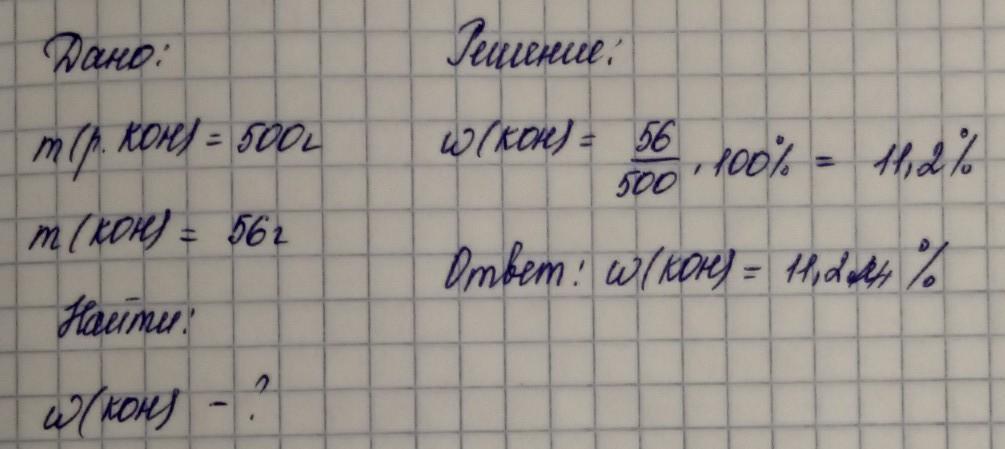 Дано:
m(р. KOH) = 500г
m(KOH) = 56г
Найти:
w(KOH) - ?
Решение:
w(KOH) = 56/500 · 100% = 11,2%
Ответ: w(KOH) = 11,2 %